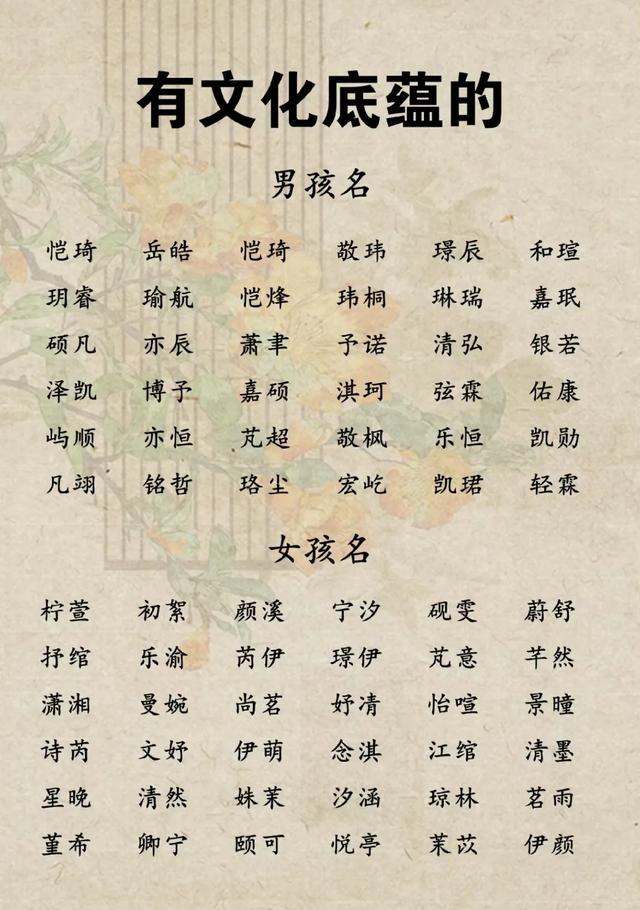 有文化底蕴的
男孩名
恺琦 岳皓 恺琦 敬玮 璟辰 和瑄
玥睿 瑜航 恺烽 玮桐 琳瑞 嘉珉
硕凡 亦辰 萧聿 予诺 清弘 银若
泽凯 博予 嘉硕 淇珂 弦霖 佑康
屿顺 亦恒 芃超 敬枫 乐恒 凯勋
凡翊 铭哲 珞尘 宏屹 凯珺 轻霖
女孩名
柠萱 初絮 颜溪 宁汐 砚雯 蔚舒
抒绾 乐渝 芮伊 璟伊 芃意 芊然
潇湘 曼婉 尚茗 妤凊 怡喧 景曈
诗芮 文妤 伊萌 念淇 江绾 清墨
星晚 清然 姝茉 汐涵 琼林 茗雨
堇希 卿宁 颐可 悦亭 茉苡 伊颜